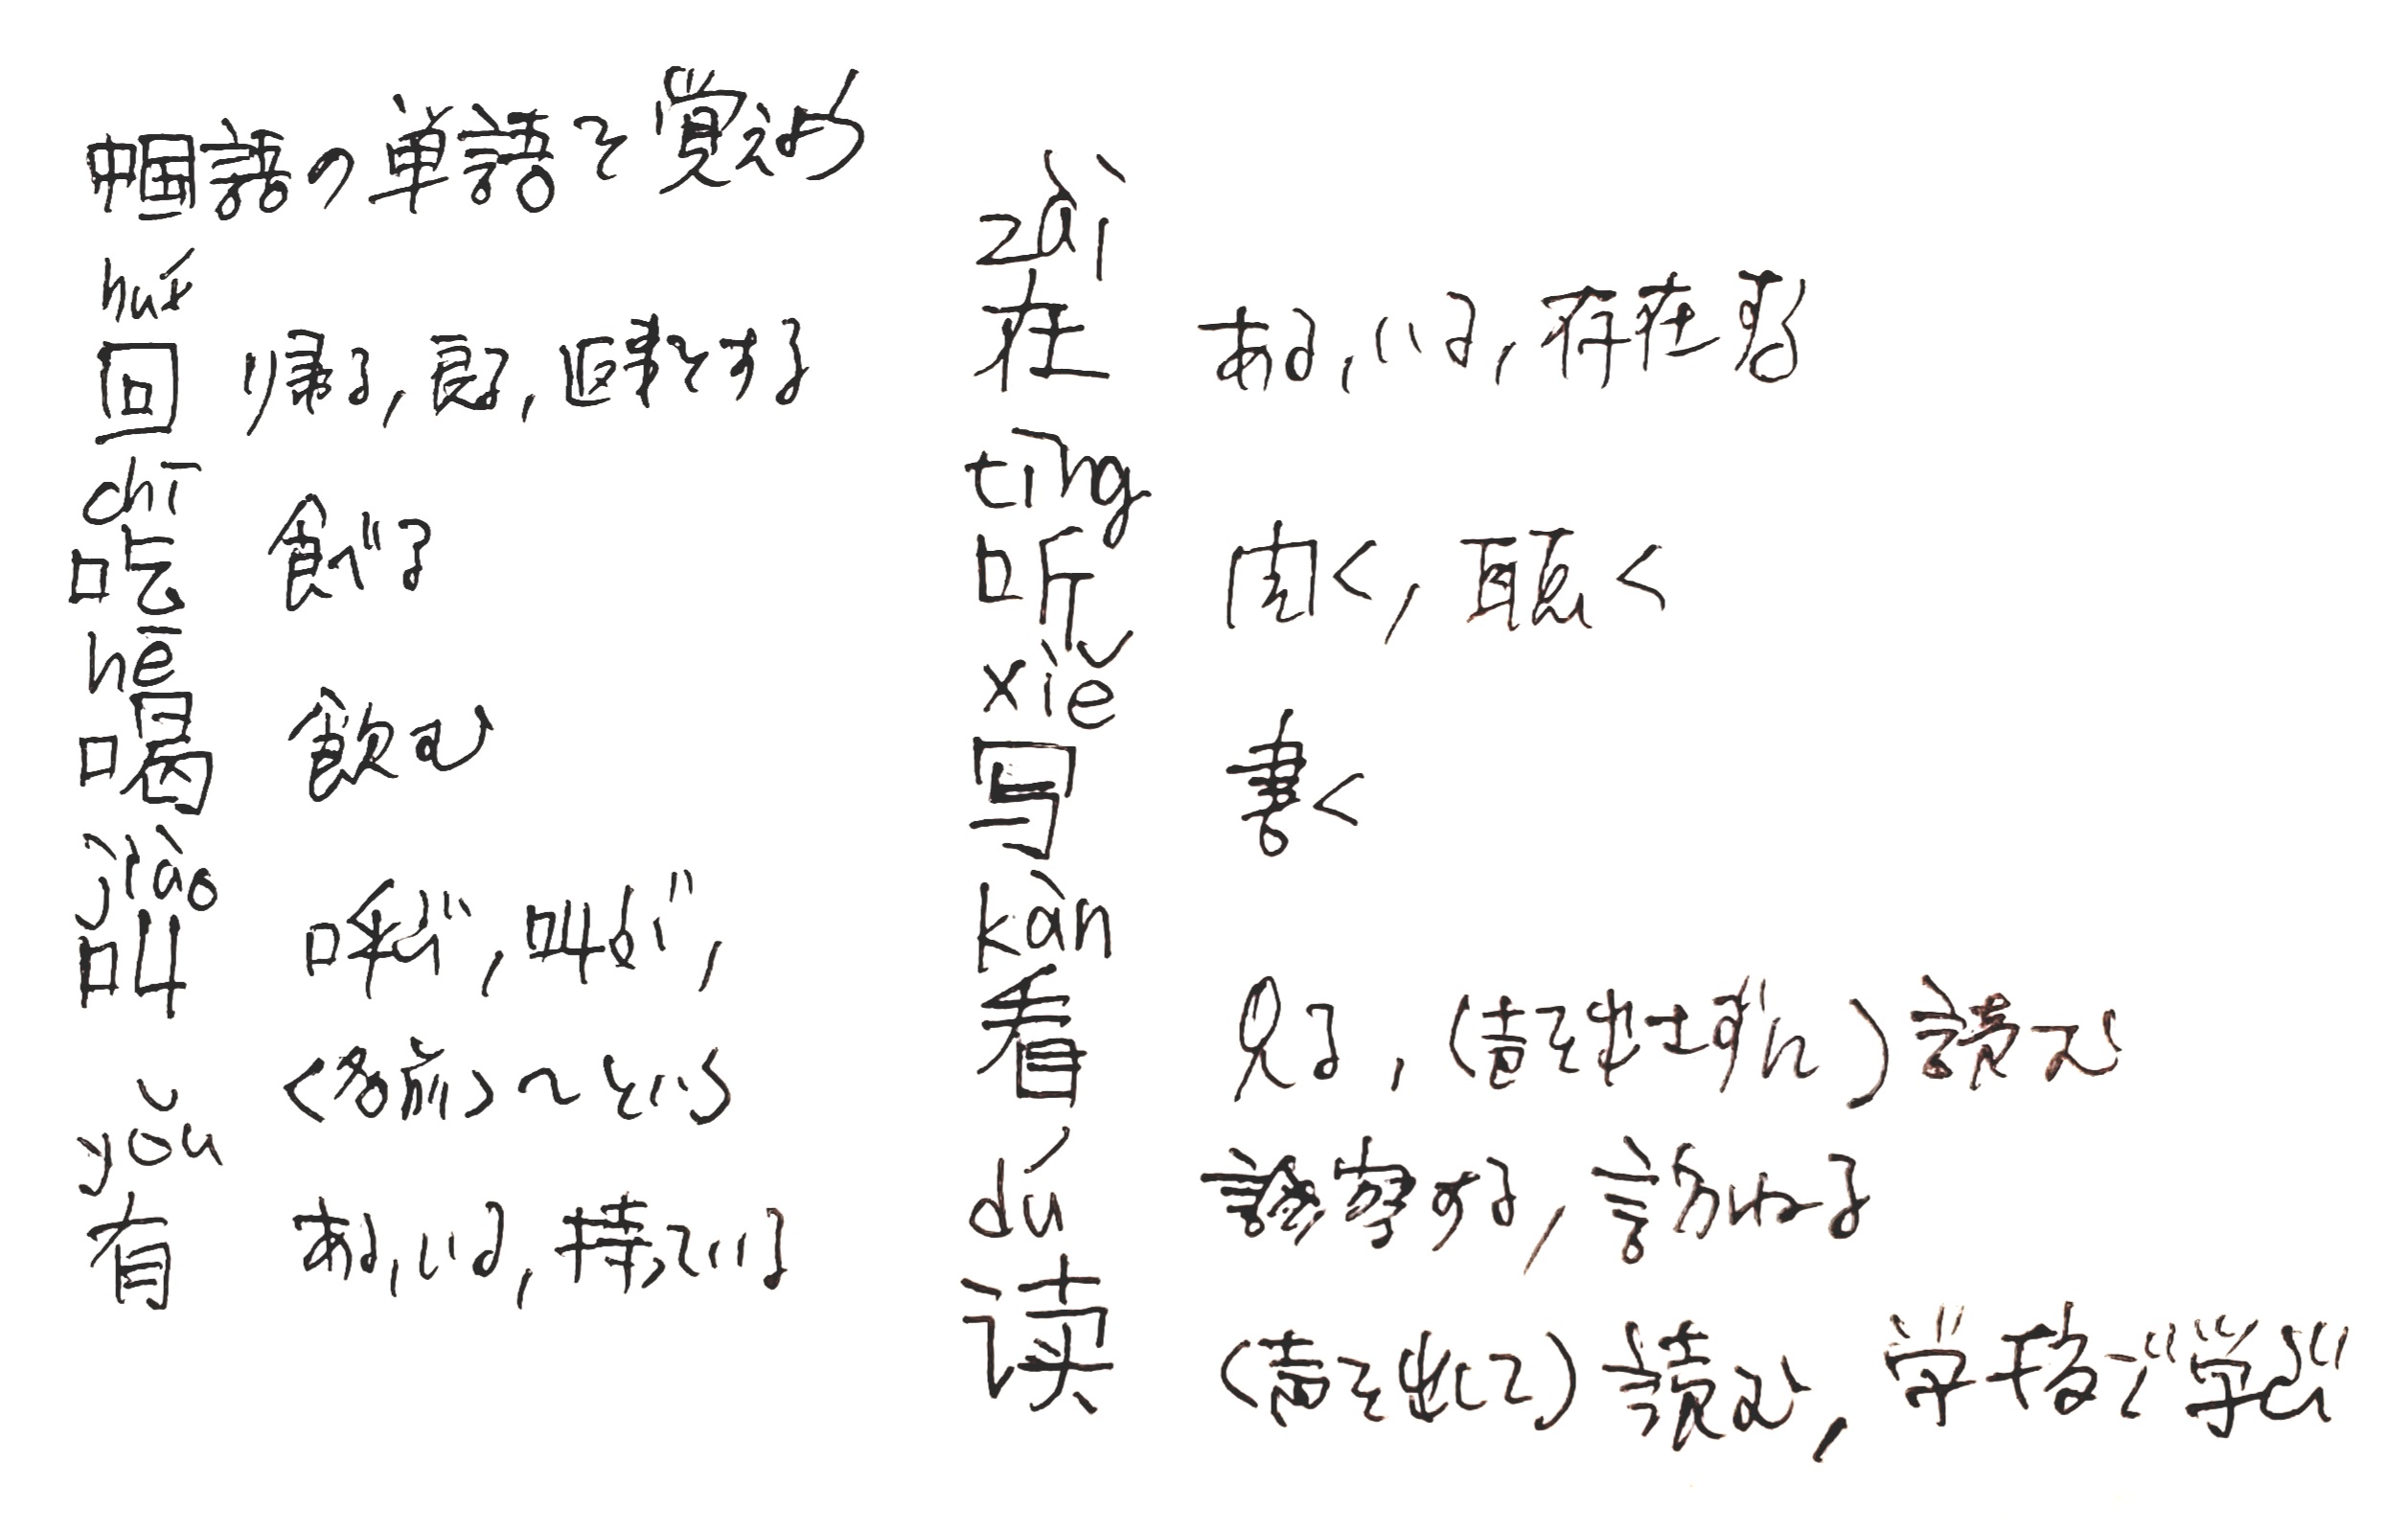 中国語の単語を覚えよう
huí
回 帰る,戻る,返事をする
chī
吃 食べる
hē
喝 飲む
jiào
叫 呼ぶ,叫ぶ,
<名前>〜という
yǒu
有 ある,いる,持っている
zài
在 ある,いる,存在する
tīng
听 聞く,聴く
xiě
写 書く
kàn
看 見る,(声を出さずに)読む
診察する,訪ねる
dú
读 (声を出して)読む,学校で学ぶ